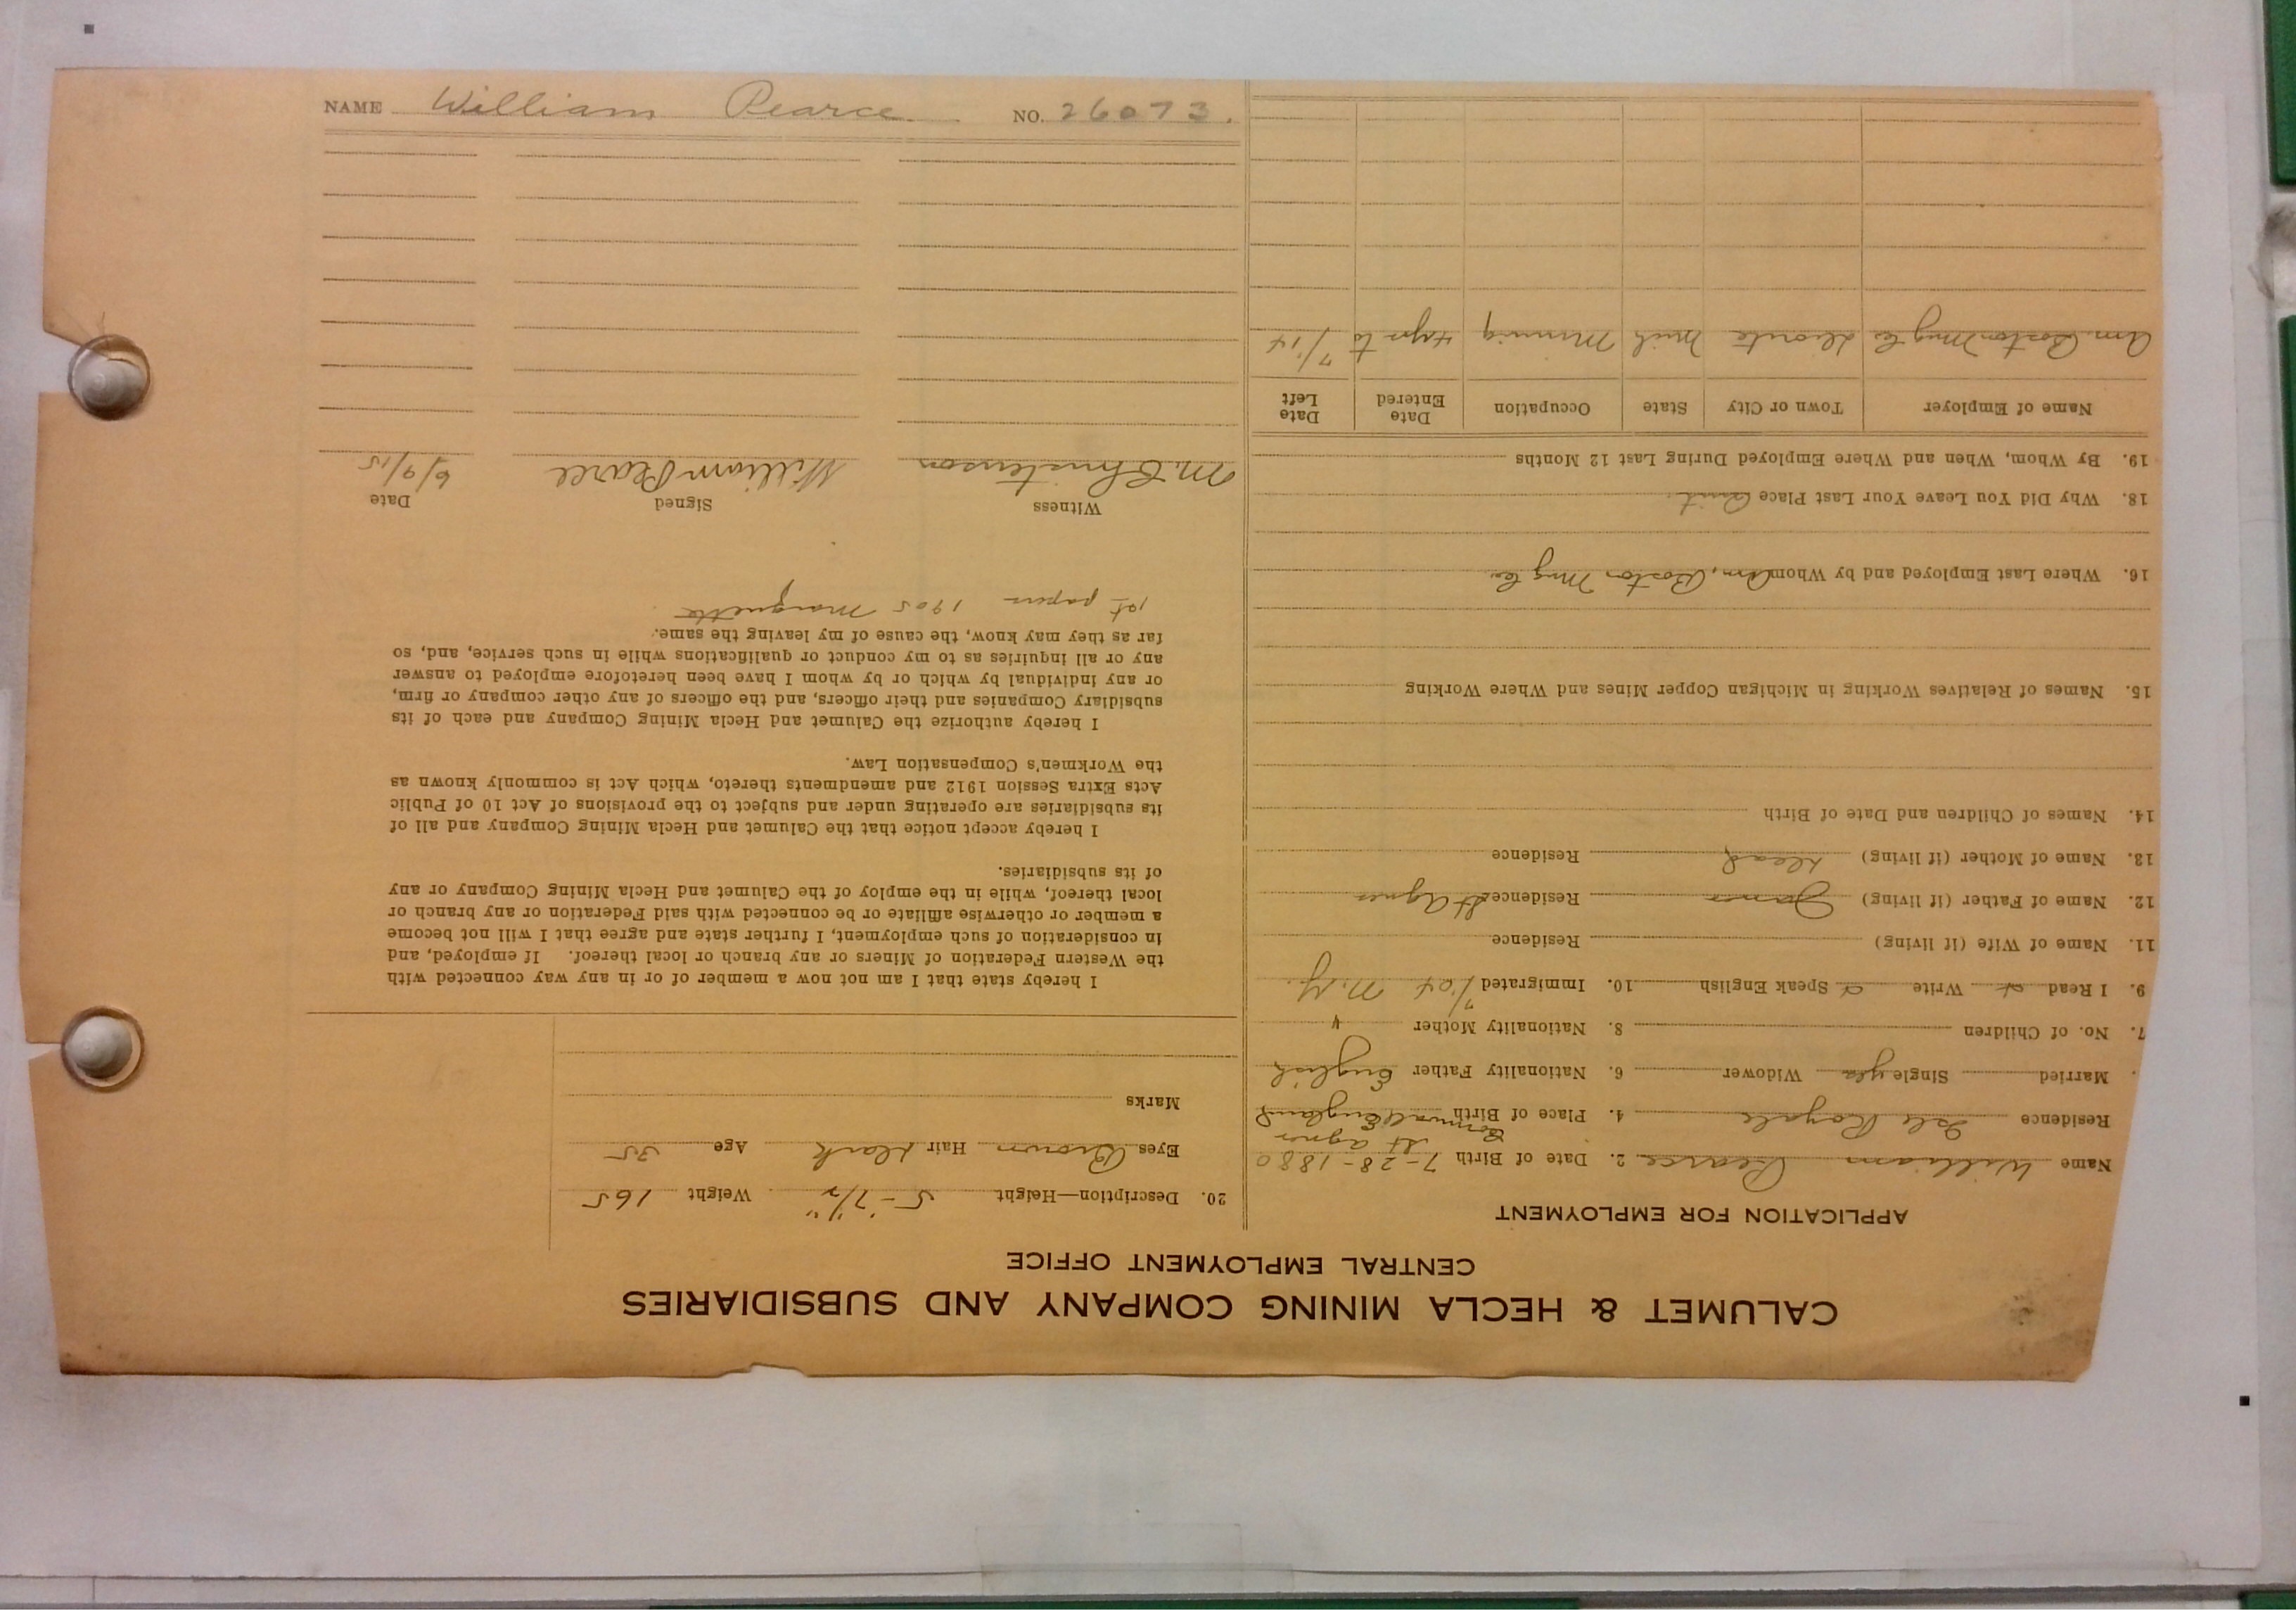 NAME William Pearce. NO. 26073.
CALUMET & HECLA MINING COMPANY AND SUBSIDIARIES
CENTRAL EMPLOYMENT OFFICE
APPLICATION FOR EMPLOYMENT
Name William Pearce 2. Date of Birth 7-28-1880
St Agnes
Residence Isle Royale 4. Place of Birth Cornwall England
Married Single yes Widower 6. Nationality Father English
7. No. of Children 8. Nationality Mother "
9. I Read Write Speak English 10. Immigrated 7/04 N.Y.
11. Name of Wife (if living) Residence
12. Name of Father (if living) James Residence St Agnes
13. Name of Mother (if living) dead Residence
14. Names of Children and Date of Birth
15. Names of Relatives Working in Michigan Copper Mines and Where Working
16. Where Last Employed and by Whom Am. Boston Mng Co
18. Why Did You Leave Your Last Place Quit
19. By Whom, When and Where Employed During Last 12 Months
Name of Employer Town or City State Occupation Date Entered Date Left
Am. Boston Mng Co Diorite Mich Mining 4 yrs to 7/14
20. Description—Height 5-'7½" Weight 165
Eyes Brown Hair dark Age 35
Marks
I hereby state that I am not now a member of or in any way connected with
the Western Federation of Miners or any branch or local thereof. If employed, and
in consideration of such employment, I further state and agree that I will not become
a member or otherwise affiliate or be connected with said Federation or any branch or
local thereof, while in the employ of the Calumet and Hecla Mining Company or any
of its subsidiaries.
I hereby accept notice that the Calumet and Hecla Mining Company and all of
its subsidiaries are operating under and subject to the provisions of Act 10 of Public
Acts Extra Session 1912 and amendments thereto, which Act is commonly known as
the Workmen's Compensation Law.
I hereby authorize the Calumet and Hecla Mining Company and each of its
subsidiary Companies and their officers, and the officers of any other company or firm,
or any individual by which or by whom I have been heretofore employed to answer
any or all inquiries as to my conduct or qualifications while in such service, and, so
far as they may know, the cause of my leaving the same.
1st papers 1905 Marquette
Witness Signed Date
M. Christenson William Pearce 6/9/15